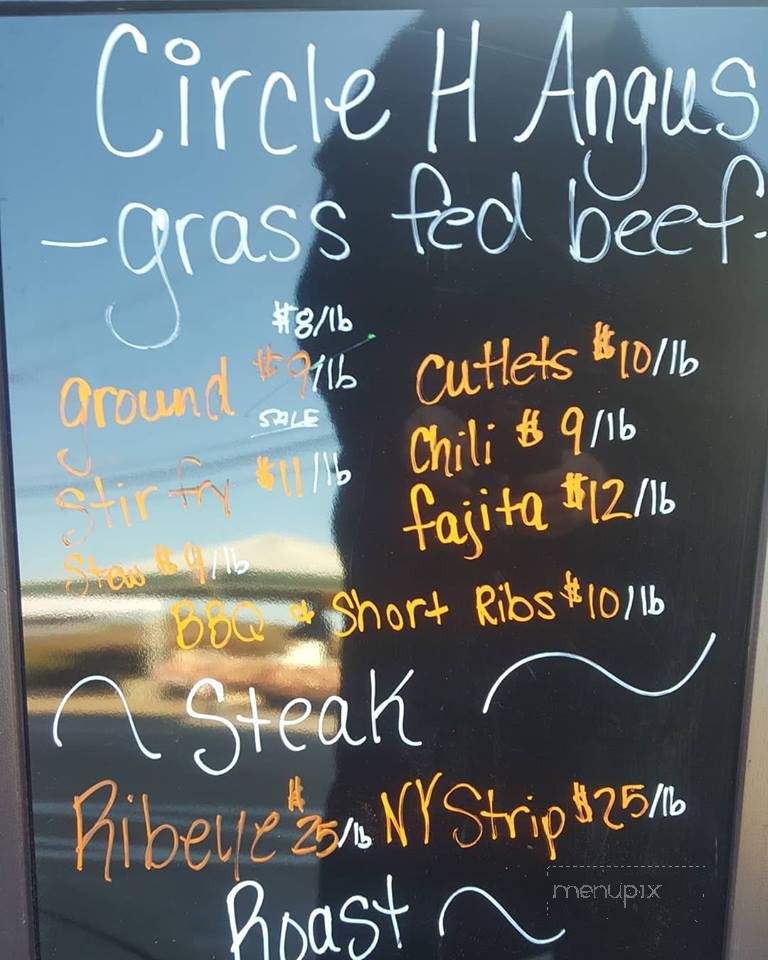 Circle H Angus
-grass fed beef-
$8/lb
ground $9/lb
SALE
Stir fry $11/lb
Stew $9/lb
Cutlets $10/lb
Chili $9/lb
fajita $12/lb
BBQ & Short Ribs $10/lb
~ Steak ~
Ribeye $25/lb NY Strip $25/lb
Roast ~
menupix